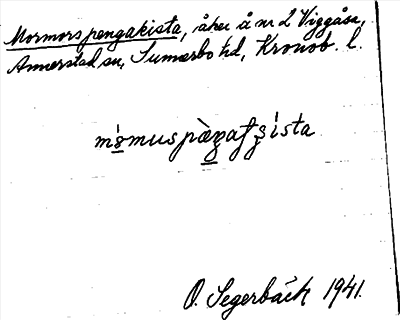 Mormorspengakista, åker å nr 2 Viggåsa,
Annerstad sn, Sunnerbo hd, Kronob. l.
O. Segerbäck 1941.